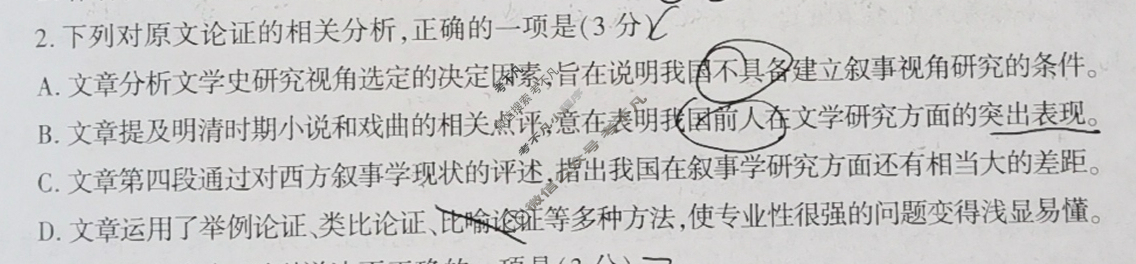 2. 下列对原文论证的相关分析,正确的一项是(3分)
A. 文章分析文学史研究视角选定的决定因素,旨在说明我国不具备建立叙事视角研究的条件。
B. 文章提及明清时期小说和戏曲的相关点评,意在表明我国前人在文学研究方面的突出表现。
C. 文章第四段通过对西方叙事学现状的评述,指出我国在叙事学研究方面还有相当大的差距。
D. 文章运用了举例论证、类比论证、比喻论证等多种方法,使专业性很强的问题变得浅显易懂。